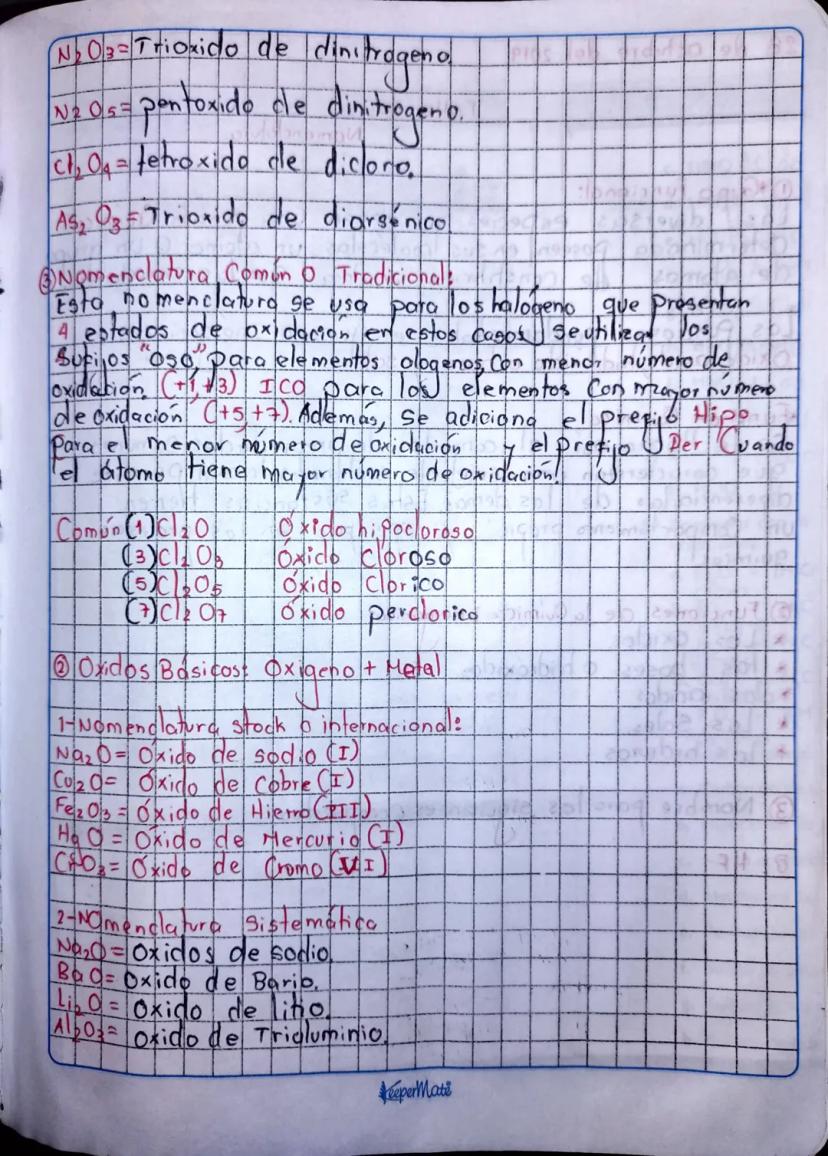 N₂O₃= Trioxido de dinitrogeno
N₂O₅= pentoxido de dinitrogeno.
Cl₂O₄= tetroxido de dicloro.
As₂O₃= Trioxido de diarsénico
③Nomenclatura Común O Tradicional:
Esta nomenclatura se usa para los halógeno que presentan
4 estados de oxidación en estos casos se utilizan los
Sufijos "oso" para elementos ologenos con menor número de
oxidación. (+1,+3) ICO para los elementos Con mayor número
de oxidación (+5,+7). Además, se adiciona el prefijo Hipo
Para el menor número de oxidación y el prefijo Per Cuando
el átomo tiene mayor número de oxidación!
Común (1)Cl₂O Óxido hipocloroso
(3)Cl₂O₃ óxido cloroso
(5)Cl₂O₅ óxido clorico
(7)Cl₂O7 óxido perclorico
② Oxidos Básicos: Oxigeno + Metal
1-Nomenclatura stock o internacional:
Na₂O= Óxido de sodio (I)
Cu₂O= Óxido de Cobre (I)
Fe₂O₃= Óxido de Hierro (III)
HgO= Óxido de Mercurio (I)
CrO₃= Óxido de Cromo (VI)
2-NOmenclatura Sistemática
Na₂O= Oxidos de sodio
BaO= Oxido de Bario.
Li₂O= Oxido de litio.
Al₂O₃= Oxido de Trialuminio.
KeeperMate